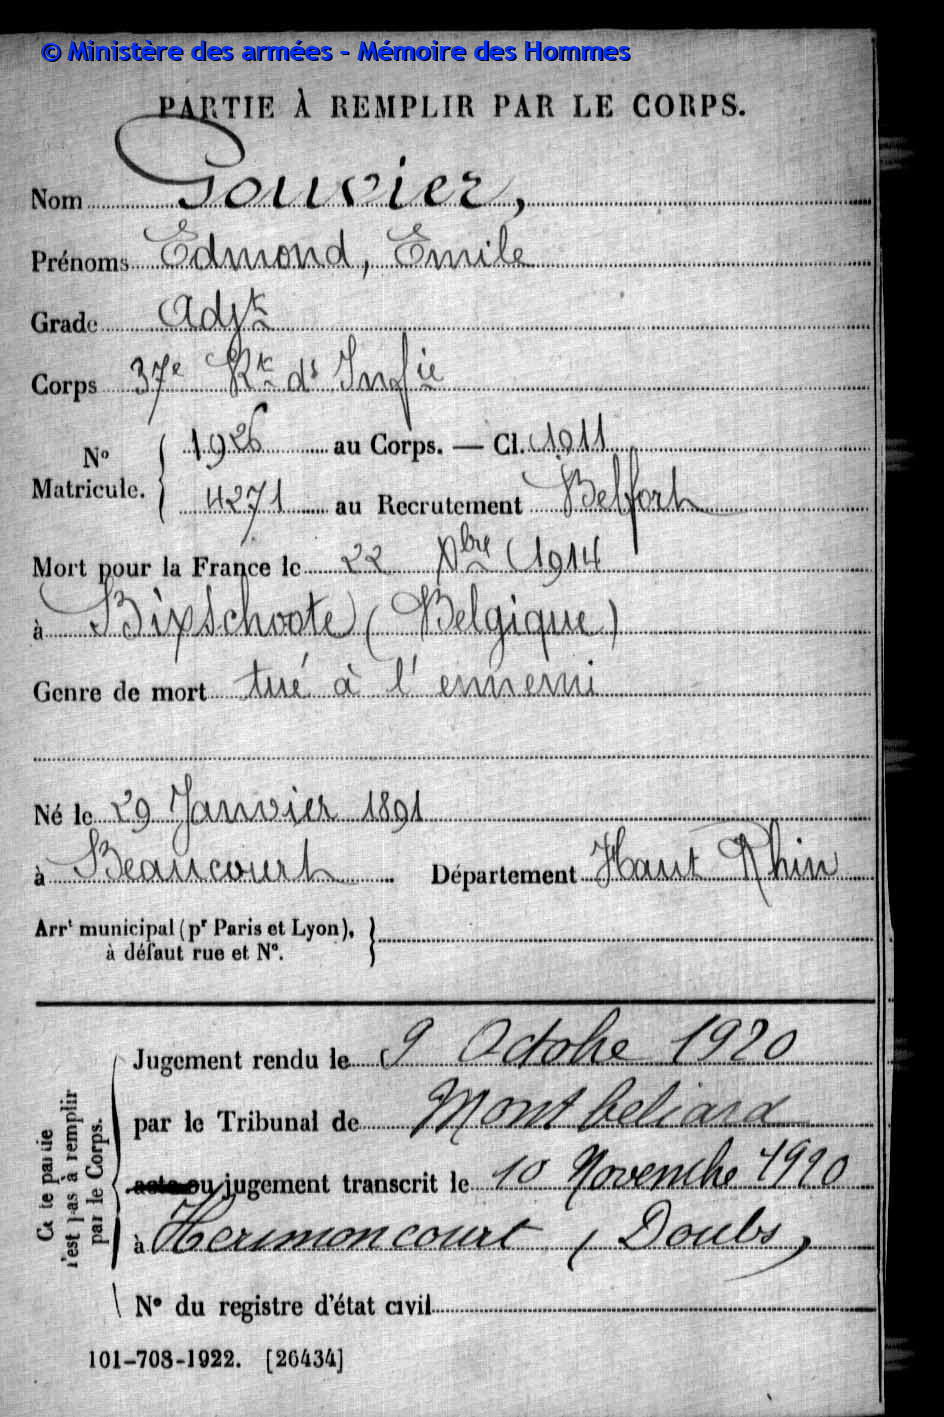 © Ministère des armées - Mémoire des Hommes
PARTIE À REMPLIR PAR LE CORPS.
Nom Gouvier,
Prénoms Edmond, Emile
Grade Adjt
Corps 37e Rt d' Infie
No Matricule. { 1926 au Corps. — Cl. 1911
4271 au Recrutement Belfort
Mort pour la France le 22 Xbre 1914
à Bixschoote (Belgique)
Genre de mort tué à l'ennemi
Né le 29 Janvier 1891
à Beaucourt Département Haut Rhin
Arrt municipal (pr Paris et Lyon),
à défaut rue et No.
Cette partie n'est pas à remplir par le Corps.
Jugement rendu le 9 Octobre 1920
par le Tribunal de Montbeliard
acte ou jugement transcrit le 10 Novembre 1920
à Herimoncourt (Doubs)
No du registre d'état civil
101-708-1922. [26434]